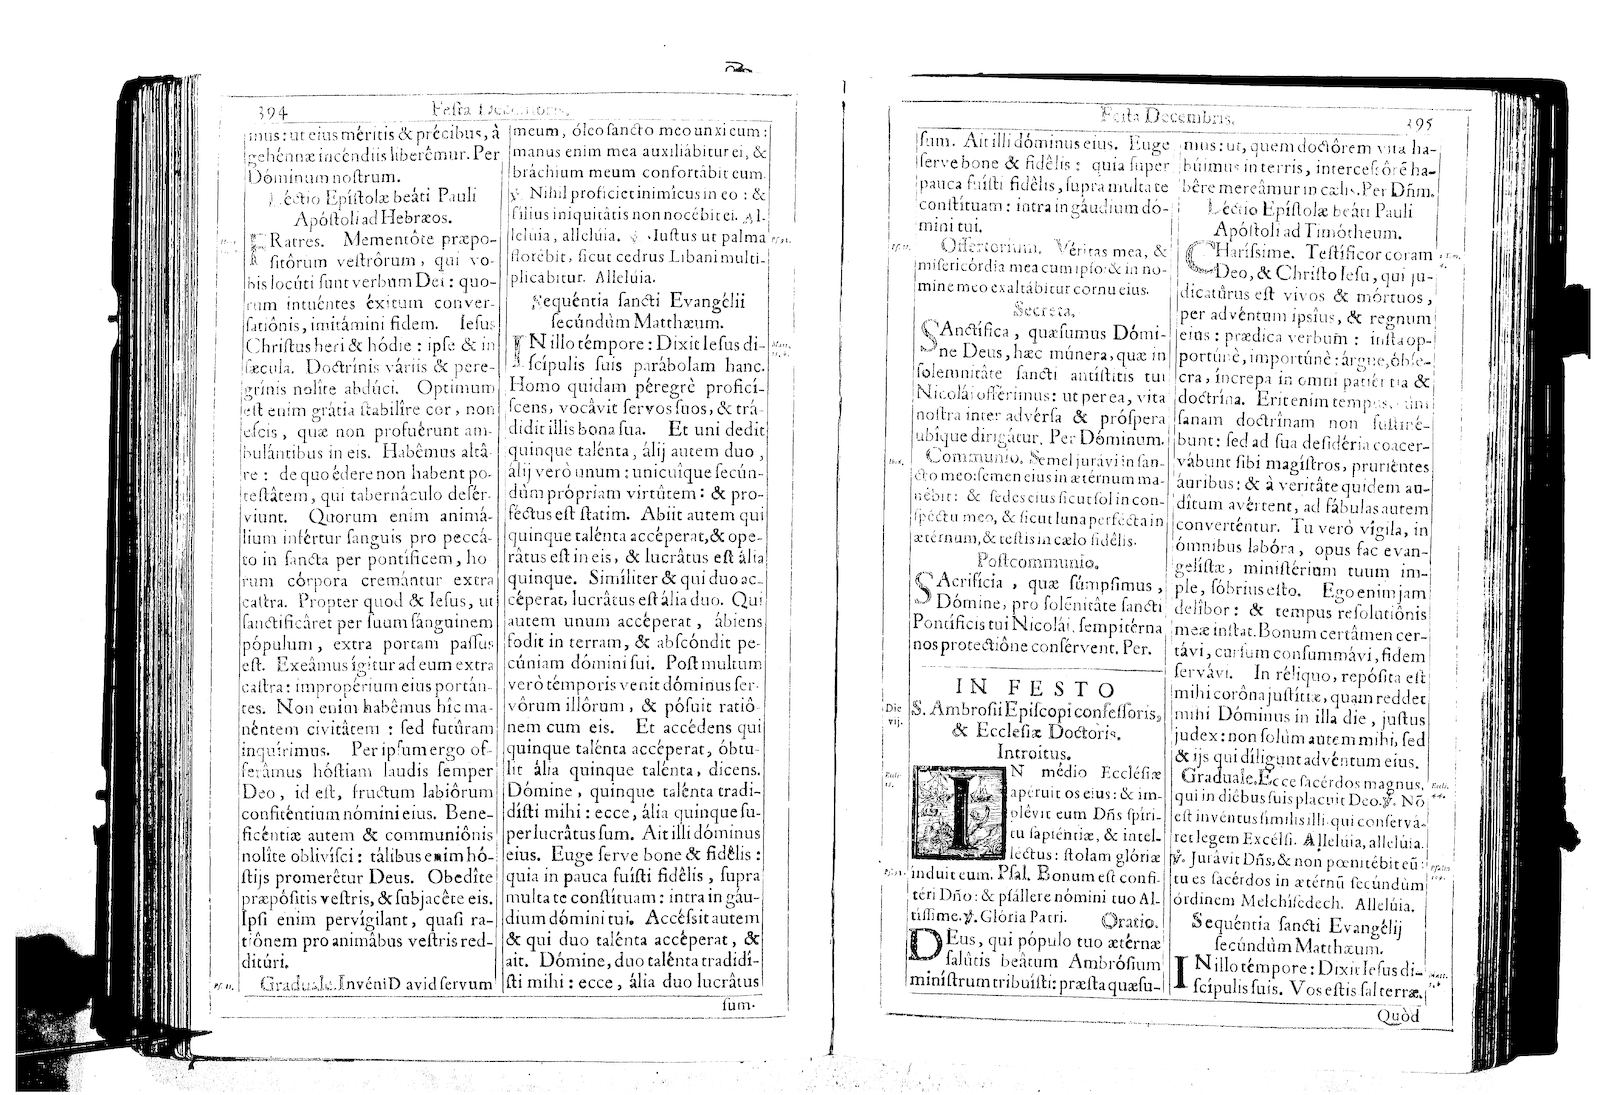 394 Festa Decembris.
mus: ut eius méritis & précibus, à
gehénnæ incéndiis liberêmur. Per
Dóminum nostrum.
Léctio Epístolæ beáti Pauli
Apóstoli ad Hebræos.
FRatres. Mementôte præpo-
sitôrum vestrôrum, qui vo-
bis locúti sunt verbum Dei: quo-
rum intuéntes éxitum conver-
satiônis, imitámini fidem. Iesus
Christus heri & hódie: ipse & in
sæcula. Doctrínis váriis & pere-
grínis nolîte abdúci. Optimum
est enim grátia stabilîre cor, non
escis, quæ non profuérunt am-
bulántibus in eis. Habêmus altâ-
re: de quo édere non habent po-
testâtem, qui tabernáculo desér-
viunt. Quorum enim animá-
lium infértur sanguis pro peccâ-
to in sancta per pontíficem, ho
rum córpora cremántur extra
castra. Propter quod & Iesus, ut
sanctificâret per suum sánguinem
pópulum, extra portam passus
est. Exeâmus ígitur ad eum extra
castra: impropérium eius portán-
tes. Non enim habêmus hîc ma-
néntem civitâtem: sed futûram
inquírimus. Per ipsum ergo of-
ferâmus hóstiam laudis semper
Deo, id est, fructum labiôrum
confiténtium nómini eius. Bene-
ficéntiæ autem & communiônis
nolîte oblivísci: tálibus enim hó-
stijs promerêtur Deus. Obedîte
præpósitis vestris, & subjacête eis.
Ipsi enim pervígilant, quasi ra-
tiônem pro animâbus vestris red-
ditúri.
Graduale. Invéni David servum
meum, óleo sancto meo unxi eum:
manus enim mea auxiliábitur ei, &
bráchium meum confortábit eum.
℣. Nihil profíciet inimícus in eo: &
filius iniquitâtis non nocébit ei. Al-
leluia, allelúia. ℣. Iustus ut palma
florébit, sicut cedrus Libani multi-
plicabitur. Allelúia.
Sequéntia sancti Evangélii
secúndùm Matthæum.
IN illo témpore: Dixit Iesus di-
scípulis suis parábolam hanc.
Homo quidam péregrè proficí-
scens, vocâvit servos suos, & trá-
didit illis bona sua. Et uni dedit
quinque talénta, álij autem duo,
álij verò unum: unicuîque secún-
dùm própriam virtûtem: & pro-
féctus est statim. Abiit autem qui
quinque talénta accéperat, & ope-
râtus est in eis, & lucrâtus est ália
quinque. Simíliter & qui duo ac-
céperat, lucrâtus est ália duo. Qui
autem unum accéperat, ábiens
fodit in terram, & abscóndit pe-
cúniam dómini sui. Post multum
verò témporis venit dóminus ser-
vôrum illôrum, & pósuit ratiô-
nem cum eis. Et accédens qui
quinque talénta accéperat, óbtu-
lit ália quinque talénta, dicens.
Dómine, quinque talénta tradi-
dísti mihi: ecce, ália quinque su-
perlucrâtus sum. Ait illi dóminus
eius. Euge serve bone & fidêlis:
quia in pauca fuísti fidêlis, supra
multa te constítuam: intra in gáu-
dium dómini tui. Accéssit autem
& qui duo talénta accéperat, &
ait. Dómine, duo talénta tradidí-
sti mihi: ecce, ália duo lucrâtus
sum.
Festa Decembris. 395
sum. Ait illi dóminus eius. Euge
serve bone & fidêlis: quia super
pauca fuísti fidêlis, supra multa te
constítuam: intra in gáudium dó-
mini tui.
Offertorium. Véritas mea, &
misericórdia mea cum ipso: & in no-
mine meo exaltábitur cornu eius.
Secreta.
SAnctífica, quæsumus Dómi-
ne Deus, hæc múnera, quæ in
solemnitâte sancti antístitis tui
Nicolái offérimus: ut per ea, vita
nostra inter advérsa & próspera
ubîque dirigátur. Per Dóminum.
Communio. Semel jurávi in san-
cto meo: semen eius in ætérnum ma-
nébit: & sedes eius sicut sol in con-
spéctu meo, & sicut luna perfécta in
ætérnum, & testis in cælo fidêlis.
Postcommunio.
SAcrifícia, quæ súmpsimus,
Dómine, pro solẽnitâte sancti
Pontíficis tui Nicolái, sempitérna
nos protectiône consérvent. Per.
IN FESTO
Die vij.
S. Ambrosii Episcopi confessoris,
& Ecclesiæ Doctoris.
Introitus.
IN médio Ecclésiæ
apéruit os eius: & im-
plévit eum Dñs spíri-
tu sapiéntiæ, & intel-
léctus: stolam glóriæ
induit eum. Psal. Bonum est confi-
téri Dño: & psállere nómini tuo Al-
tíssime. ℣. Glória Patri. Oratio.
DEus, qui pópulo tuo ætérnæ
salûtis beâtum Ambrósium
minístrum tribuísti: præsta quæsu-
mus: ut, quem doctôrem vita ha-
búimus in terris, intercessôrẽ ha-
bêre mereâmur in cælis. Per Dñm.
Léctio Epístolæ beáti Pauli
Apóstoli ad Timótheum.
CHaríssime. Testíficor coram
Deo, & Christo Iesu, qui ju-
dicatûrus est vivos & mórtuos,
per advéntum ipsíus, & regnum
eius: prædica verbum: insta op-
portúnè, importúnè: árgue, óbse-
cra, íncrepa in omni patiéntia &
doctrîna. Erit enim tempus, cùm
sanam doctrînam non sustiné-
bunt: sed ad sua desidéria coacer-
vábunt sibi magístros, pruriéntes
áuribus: & à veritâte quidem au-
dîtum avértent, ad fábulas autem
converténtur. Tu verò vígila, in
ómnibus labóra, opus fac evan-
gelístæ, ministérium tuum im-
ple, sóbrius esto. Ego enim jam
delíbor: & tempus resolutiônis
meæ instat. Bonum certâmen cer-
távi, cursum consummávi, fidem
servávi. In réliquo, repósita est
mihi corôna justítiæ, quam reddet
mihi Dóminus in illa die, justus
judex: non solùm autem mihi, sed
& ijs qui díligunt advéntum eius.
Graduale. Ecce sacérdos magnus,
qui in diébus suis placuit Deo. ℣. Nõ
est invéntus símilis illi, qui conservá-
ret legem Excélsi. Allelúia, allelúia.
℣. Jurávit Dñs, & non pœnitébit eũ:
tu es sacérdos in ætérnũ secúndùm
órdinem Melchísedech. Allelúia.
Sequéntia sancti Evangélij
secúndùm Matthæum.
IN illo témpore: Dixit Iesus di-
scípulis suis. Vos estis sal terræ.
Quòd